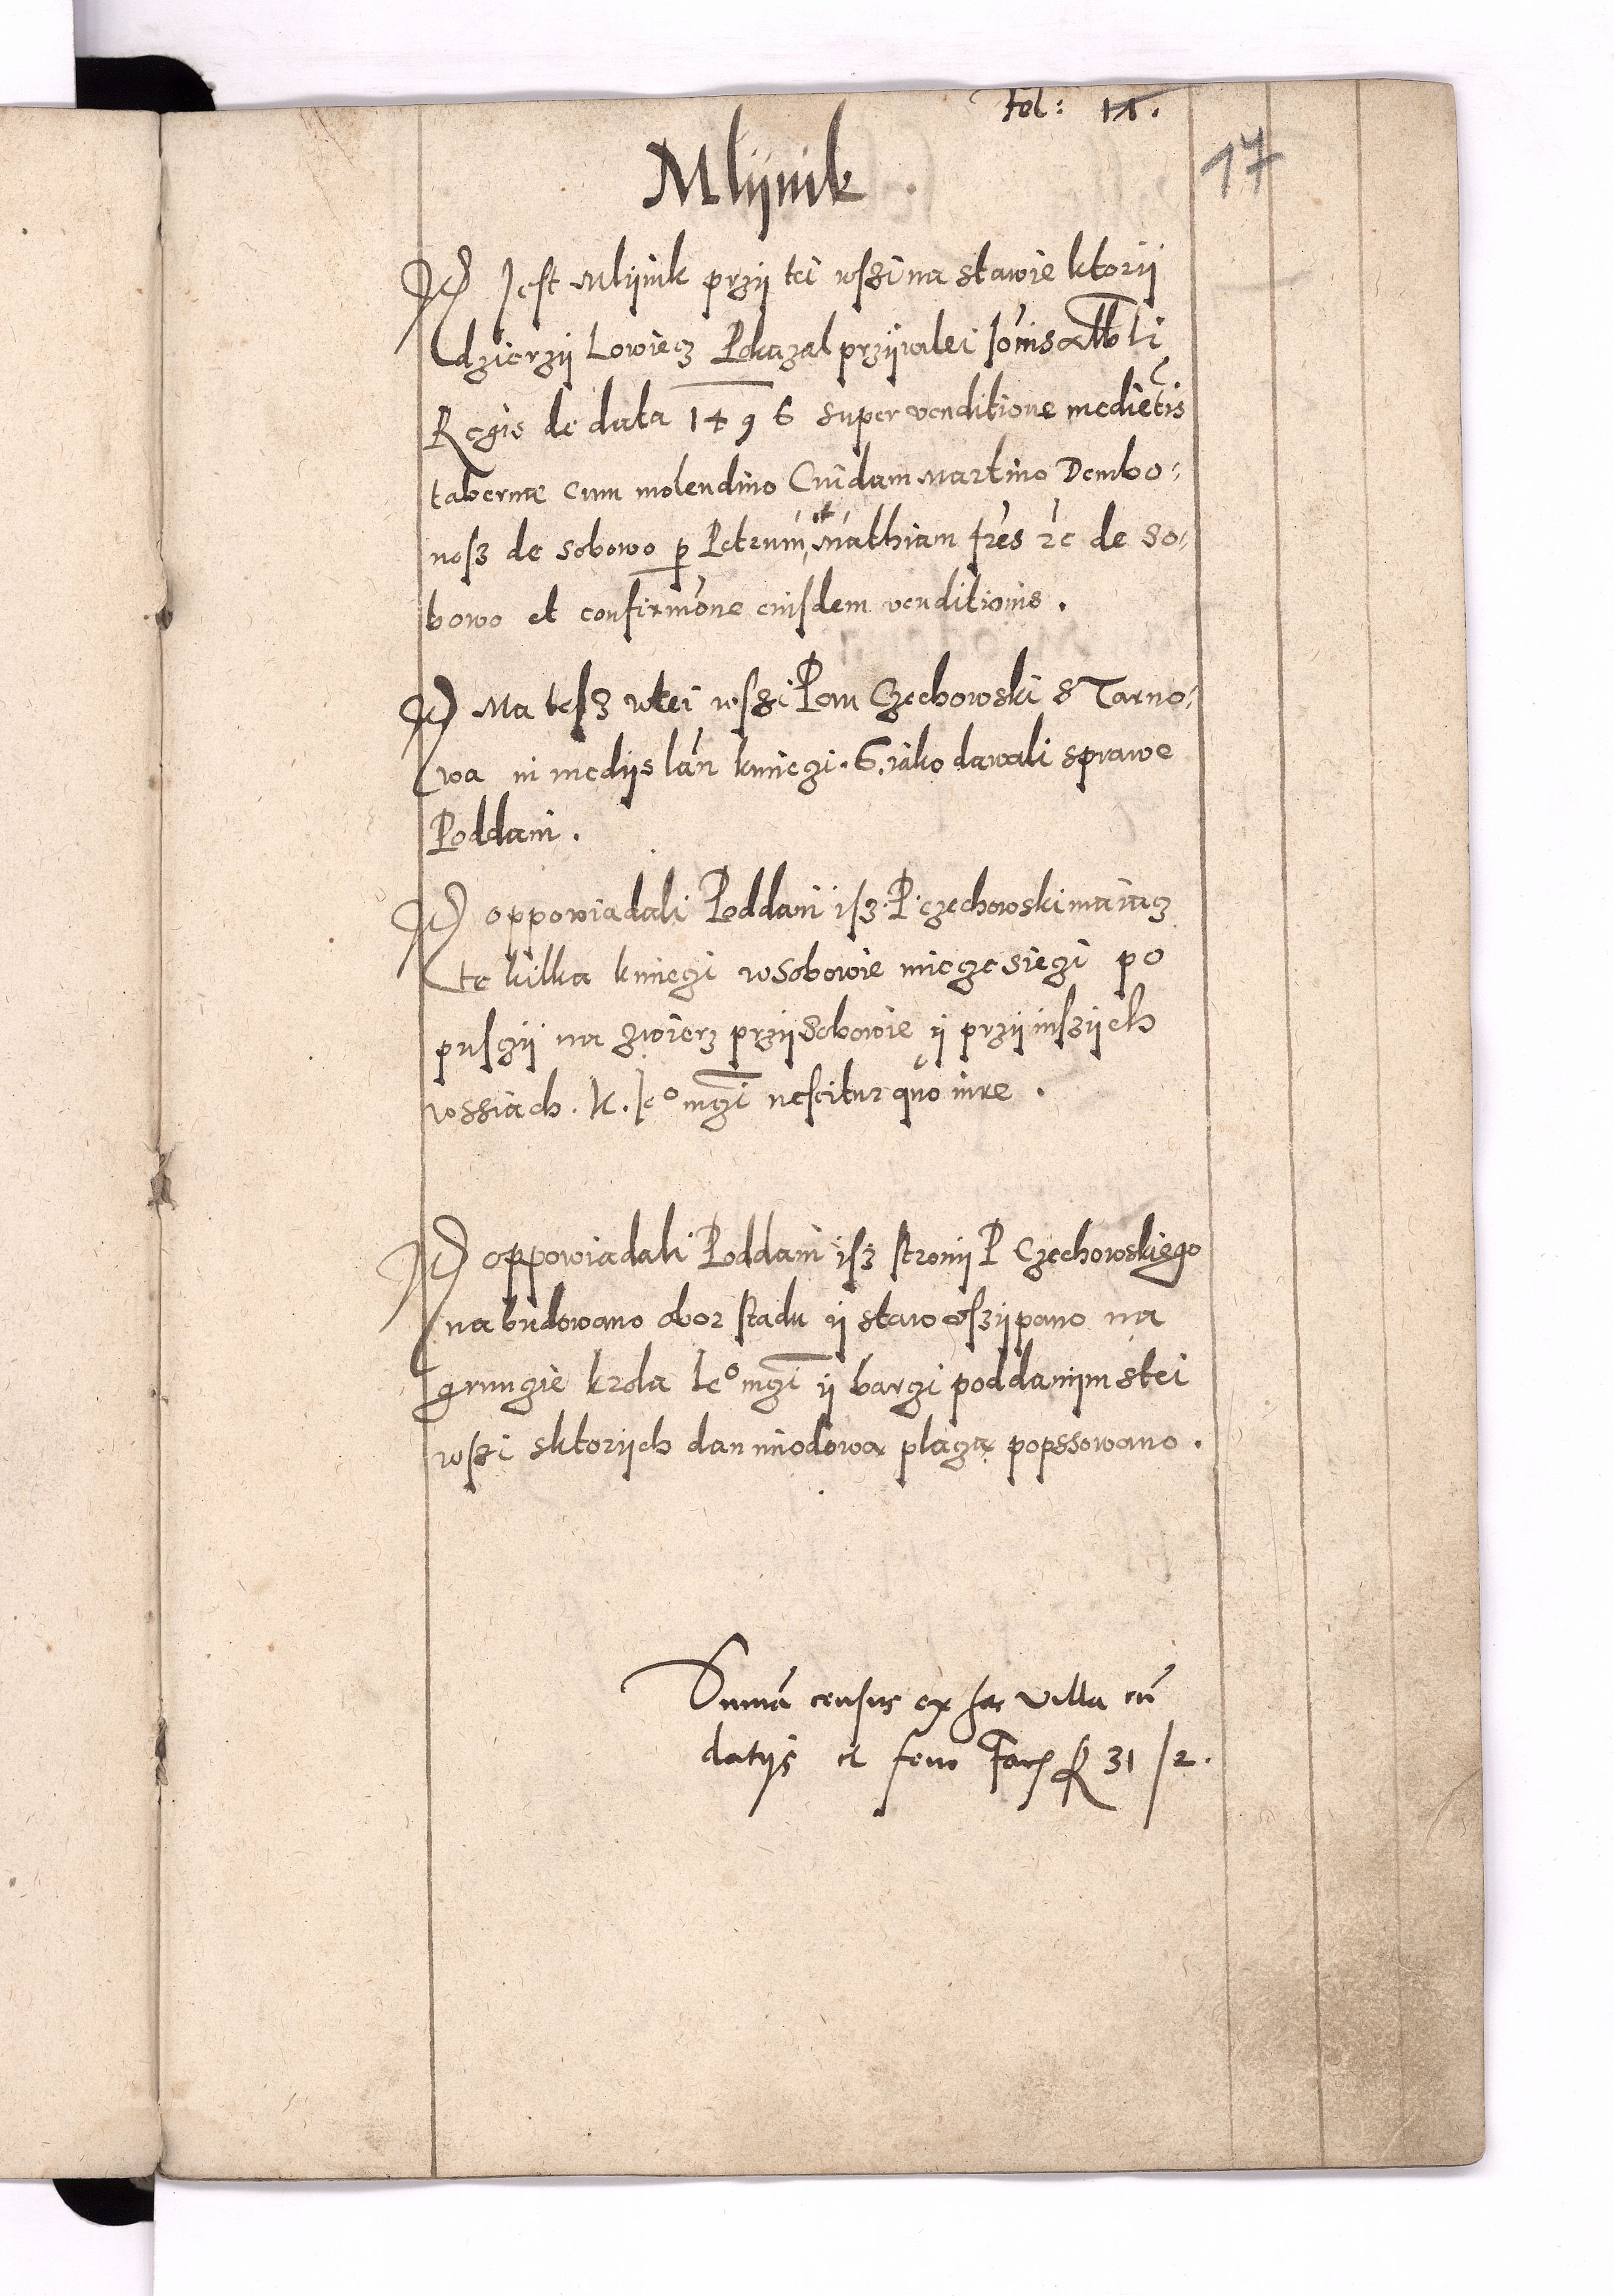 Fol: 11.
17
Mlijnik.
Jt Jest Mlijnik przij tei wszi na stawie ktorij
dzierzij Lowiecz Pokazal przijwilei Joānis Alb̄ti
Regis de data 1496 super venditione medietis
tabernæ cum molendino Cuidam Martino Dembo:
nosz de sobowo p Petrum, et Mathiam frēs ꝛc de So:
bowo et confirmōne eiusdem venditionis.
Jt Ma tesz wtei wszi Pan Czechowski s Tarno:
wa in medijs lan kmiezi. 6. iako dawali sprawe
Poddani.
Jt oppowiadali Poddani isz. P. czechowski maiącz
te kilka kmiezi w Sobowie miecze sieczi po
pusczij na zwierz przij Sobowie ij przij inszijch
wssiach. K. Je° mczi nescitur quo iure.
Jt oppowiadali Poddani isz stronij P Czechowskiego
na budowano obor stadu ij staw osszijpano na
grunczie krola Je° mczi ij barzi poddanijm stei
wszi sktorijch dan miodowa placzą popssowano.
Summa census ex hac villa cū
datijs et feno facit fl 31 / 2.